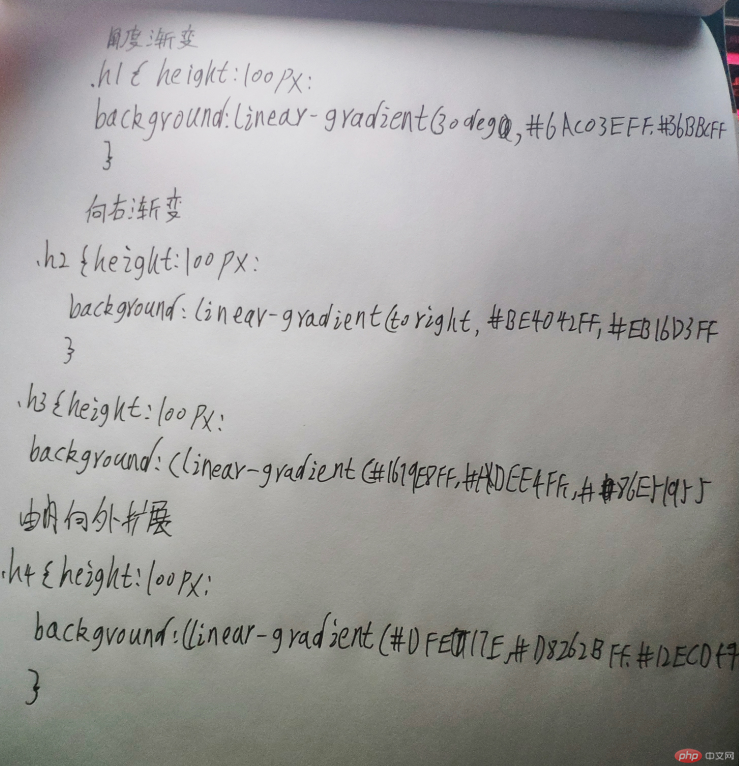 角度渐变
.h1{ height:100px:
background:linear-gradient(30deg, #6AC03EFF.#36BBCFF
}
向右渐变
.h2 {height:100px:
background: linear-gradient(to right, #BE4042FF, #EB16D3FF
}
.h3{height:100px:
background:(linear-gradient(#1679E8FF,
由内向外扩展
.h4{height:100px:
background:(linear-gradient( #D8262BFF.
}
php 中文网